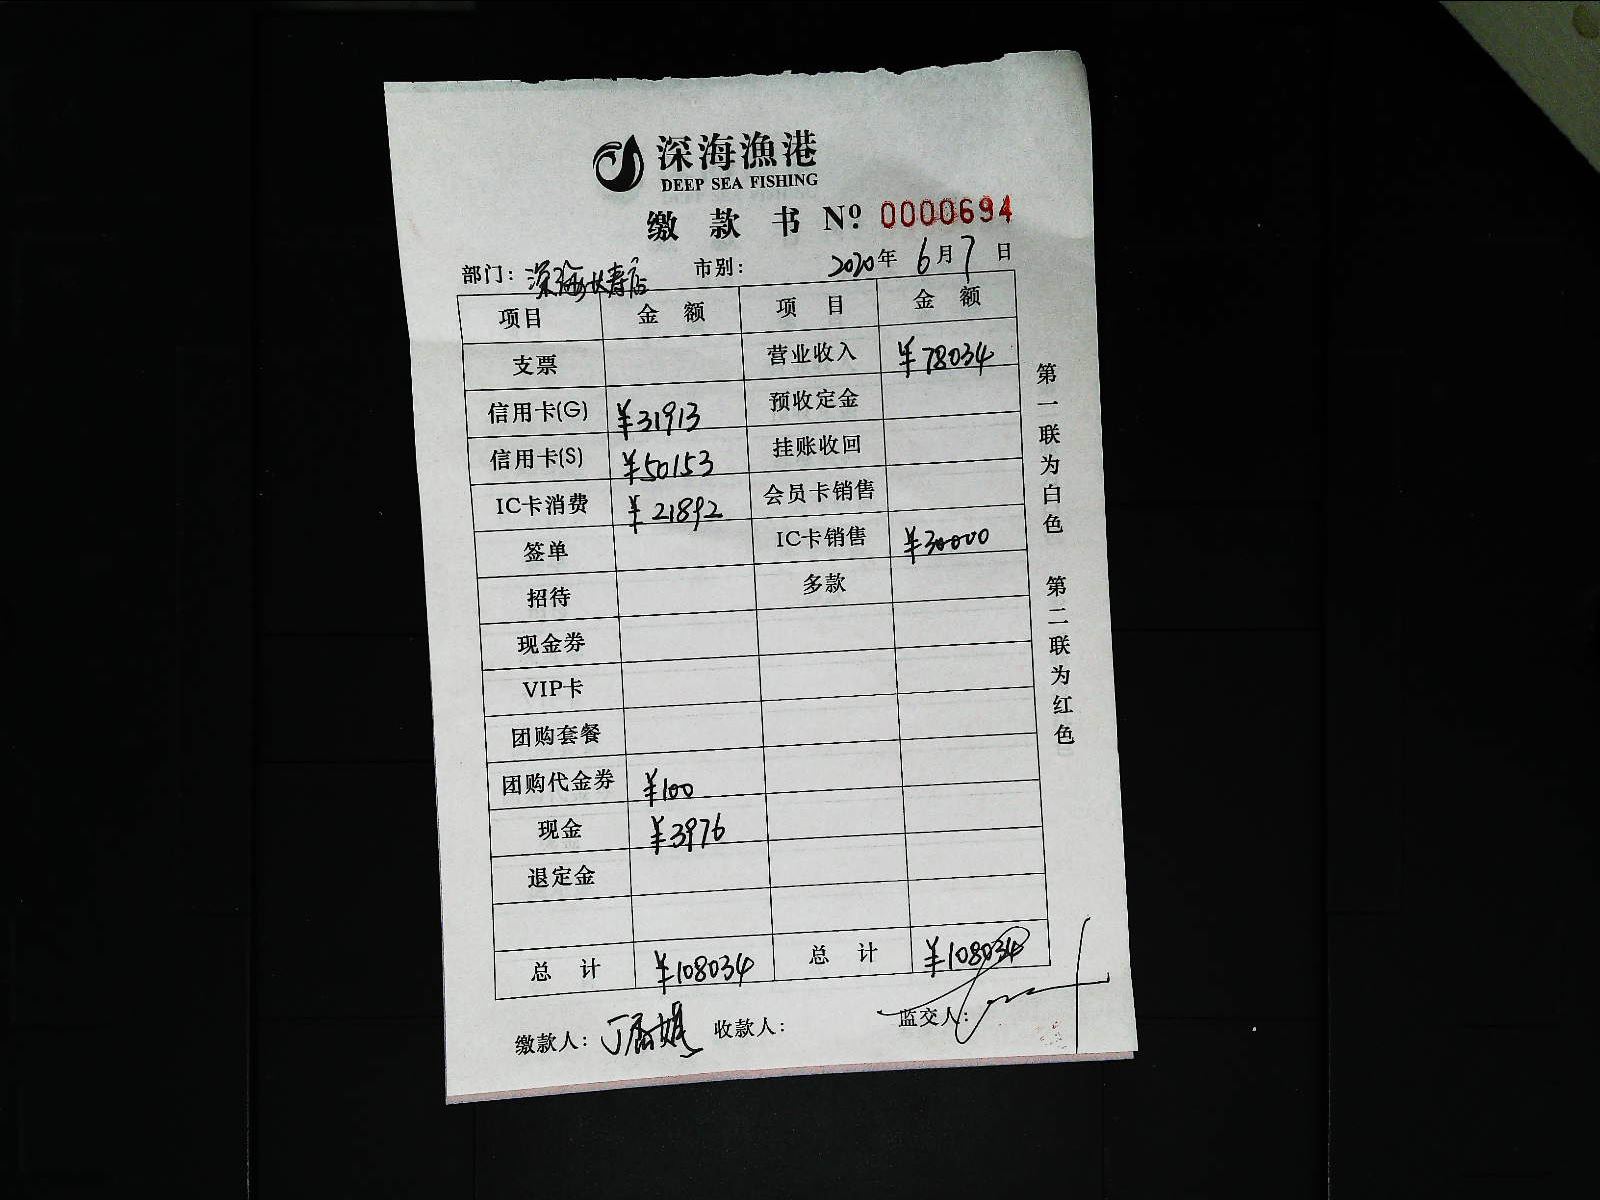 深海漁港
DEEP SEA FISHING
缴 款 书 Nº. 0000694
部门: 深海长寿店 市别: 2020年 6月7日
项目 金 额 项 目 金 额
支票 营业收入 ¥78034
信用卡(G) ¥31913 预收定金
信用卡(S) ¥50153 挂账收回
IC卡消费 ¥21892 会员卡销售
签单 IC卡销售 ¥30000
招待 多款
现金券
VIP卡
团购套餐
团购代金券 ¥100
现金 ¥3976
退定金
总 计 ¥108034 总 计 ¥108034
缴款人: 收款人: 监交人:
第一联为白色 第二联为红色